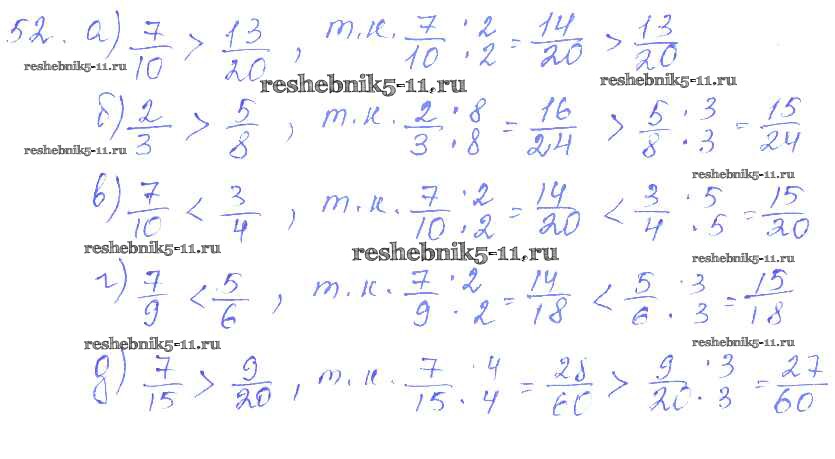 52. а) 7/10 > 13/20, т.к. 7/10 · 2/2 = 14/20 > 13/20
reshebnik5-11.ru
reshebnik5-11.ru
reshebnik5-11.ru
б) 2/3 > 5/8, т.к. 2/3 · 8/8 = 16/24 > 5/8 · 3/3 = 15/24
reshebnik5-11.ru
reshebnik5-11.ru
в) 7/10 < 3/4, т.к. 7/10 · 2/2 = 14/20 < 3/4 · 5/5 = 15/20
reshebnik5-11.ru
reshebnik5-11.ru
reshebnik5-11.ru
г) 7/9 < 5/6, т.к. 7/9 · 2/2 = 14/18 < 5/6 · 3/3 = 15/18
reshebnik5-11.ru
reshebnik5-11.ru
д) 7/15 > 9/20, т.к. 7/15 · 4/4 = 28/60 > 9/20 · 3/3 = 27/60